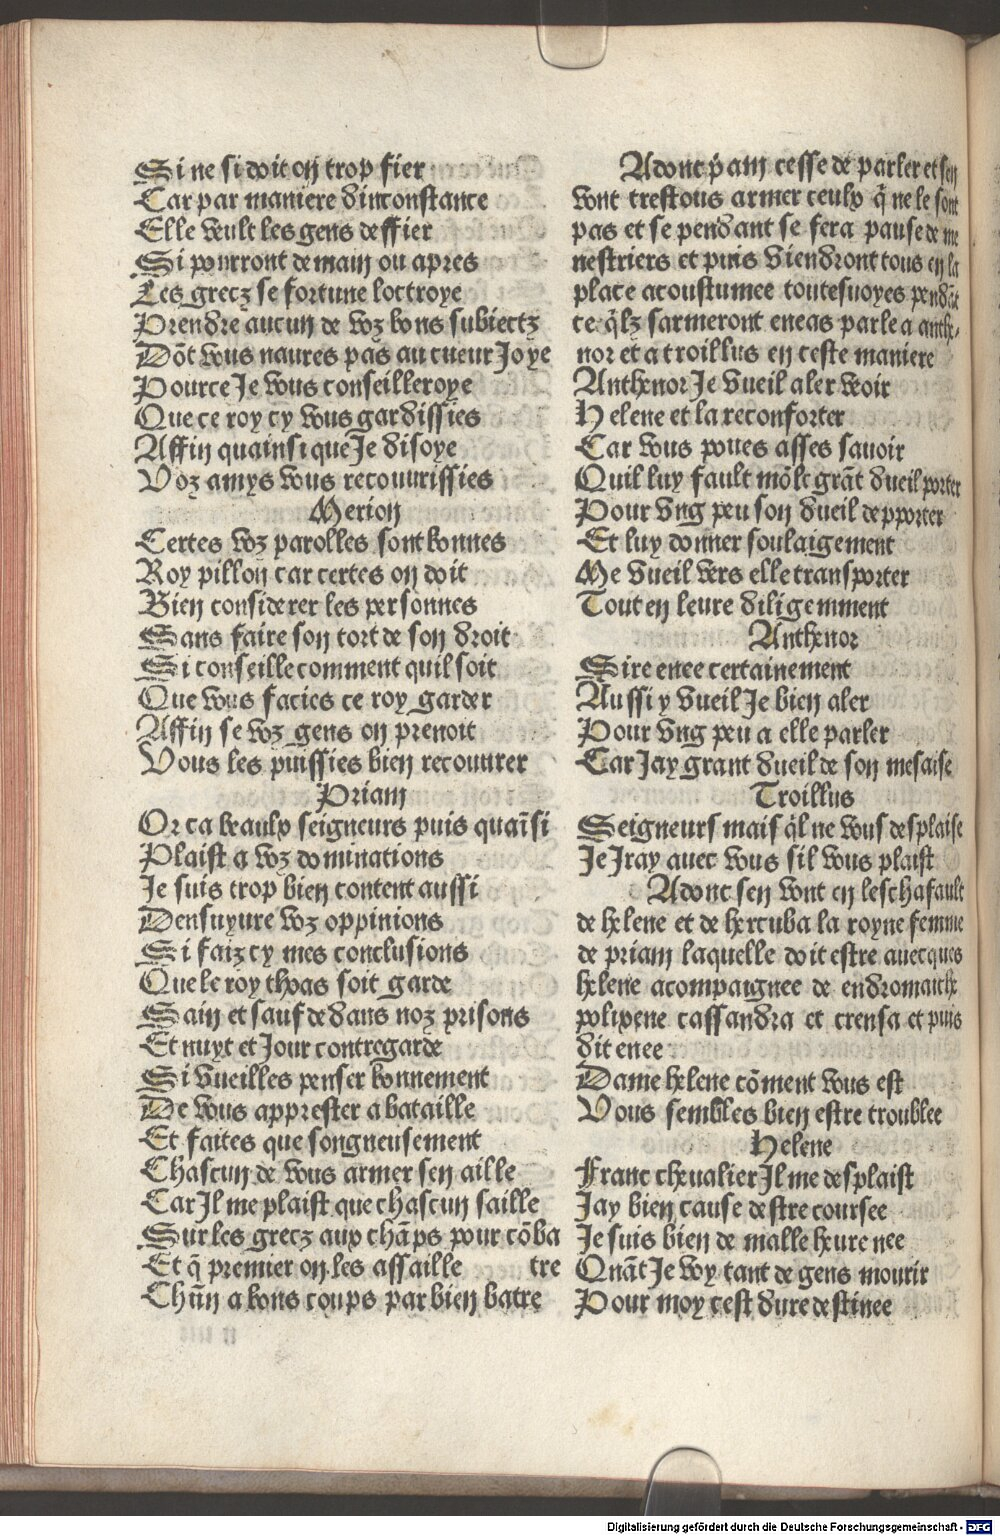 Si ne si doit on trop fier
Car par maniere dinconstance
Elle veult les gens deffier
Si pourront demain ou apres
Les grecz se fortune loctroye
Prendre aucun de voz bons subiectz
Dõt vous naures pas au cueur Joye
Pource Je vous conseilleroye
Que ce roy cy vous gardissies
Affin quainsi que Je disoye
Voz amys vous recouurissies
Merion
Certes voz parolles sont bonnes
Roy pillon car certes on doit
Bien considerer les personnes
Sans faire son tort de son droit
Si conseille comment quil soit
Que vous facies ce roy garder
Affin se voz gens on prenoit
Vous les puissies bien recouurer
Priam
Or ca beaulx seigneurs puis quaĩsi
Plaist a voz dominations
Je suis trop bien content aussi
Densuyure voz oppinions
Si faiz cy mes conclusions
Que le roy thoas soit garde
Sain et sauf dedans noz prisons
Et nuyt et Jour contregarde
Si vueilles penser bonnement
De vous apprester a bataille
Et faites que songneusement
Chascun de vous armer sen aille
Car Jl me plaist que chascun saille
Sur les grecz aux chãps pour cõba
Et q̃ premier on les assaille tre
Chũn a bons coups par bien batre
Adonc p̃am cesse de parler et sen
vont trestous armer ceulx q̃ ne le sont
pas et se pendant se fera pause de me
nestriers et puis viendront tous en la
place acoustumee toutesuoyes pendãt
ce q̃lz sarmeront eneas parle a anthe-
nor et a troillus en ceste maniere
Anthenor Je vueil aler veoir
Helene et la reconforter
Car vous poues asses sauoir
Quil luy fault mõlt grãt dueil porter
Pour vng peu son dueil depporter
Et luy donner soulaigement
Me vueil vers elle transporter
Tout en leure diligemment
Anthenor
Sire enee certainement
Aussi y vueil Je bien aler
Pour vng peu a elle parler
Car Jay grant dueil de son mesaise
Troillus
Seigneurs mais q̃l ne vous desplaise
Je Jray auec vous sil vous plaist
Adonc sen vont en leschafault
de helene et de hercuba la royne femme
de priam laquelle doit estre auecques
helene acompaignee de endromache
polixene cassandra et creusa et puis
dit enee
Dame helene cõment vous est
Vous sembles bien estre troublee
Helene
Franc cheualier Jl me desplaist
Jay bien cause destre coursee
Je suis bien de malle heure nee
Quãt Je voy tant de gens mourir
Pour moy cest dure destinee
Digitalisierung gefördert durch die Deutsche Forschungsgemeinschaft - DFG